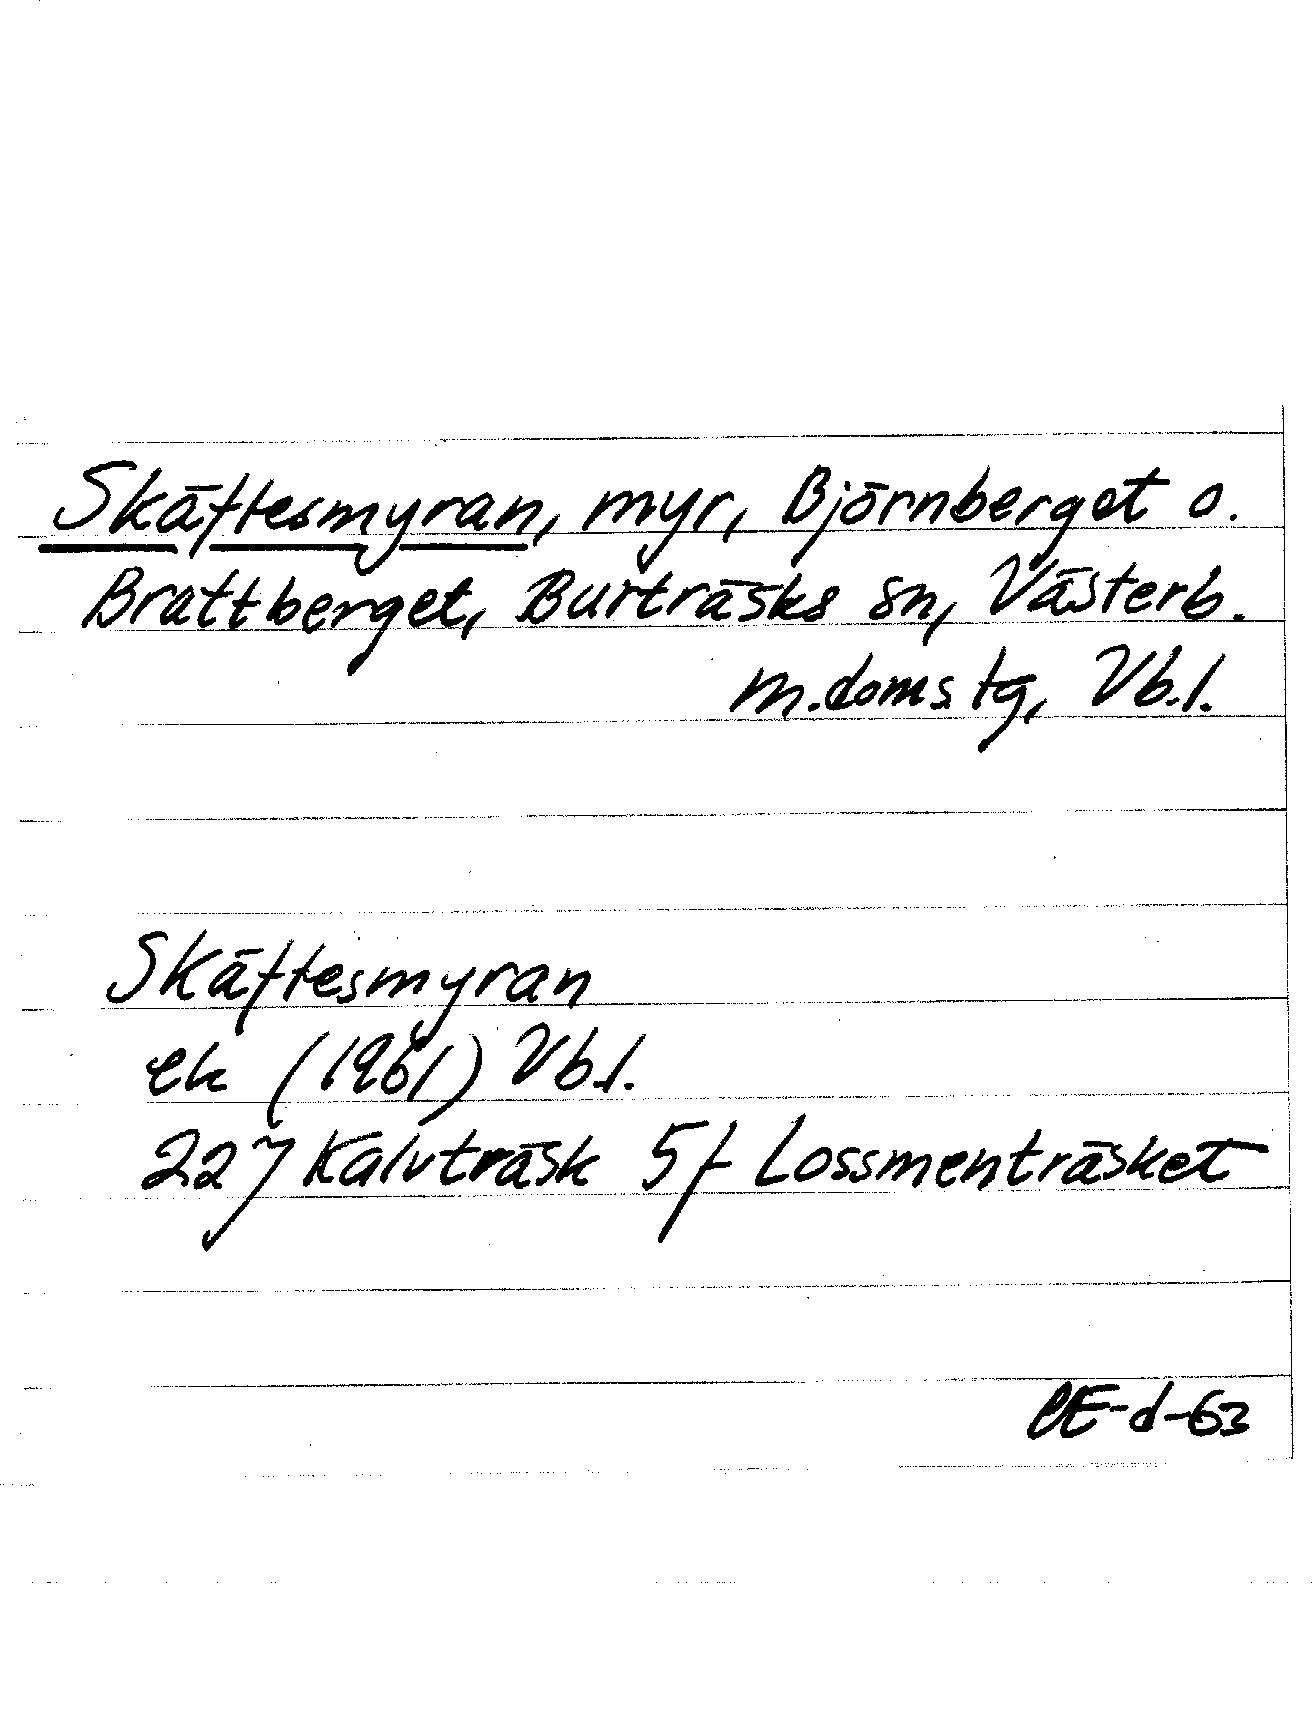 Skäftesmyran, myr, Björnberget o.
Brattberget, Burträsks sn, Västerb.
m.domstg, Vb.l.
Skäftesmyran
ek (1961) Vb.l.
227 Kalvträsk 5f Lossmenträsket
CE-d-63